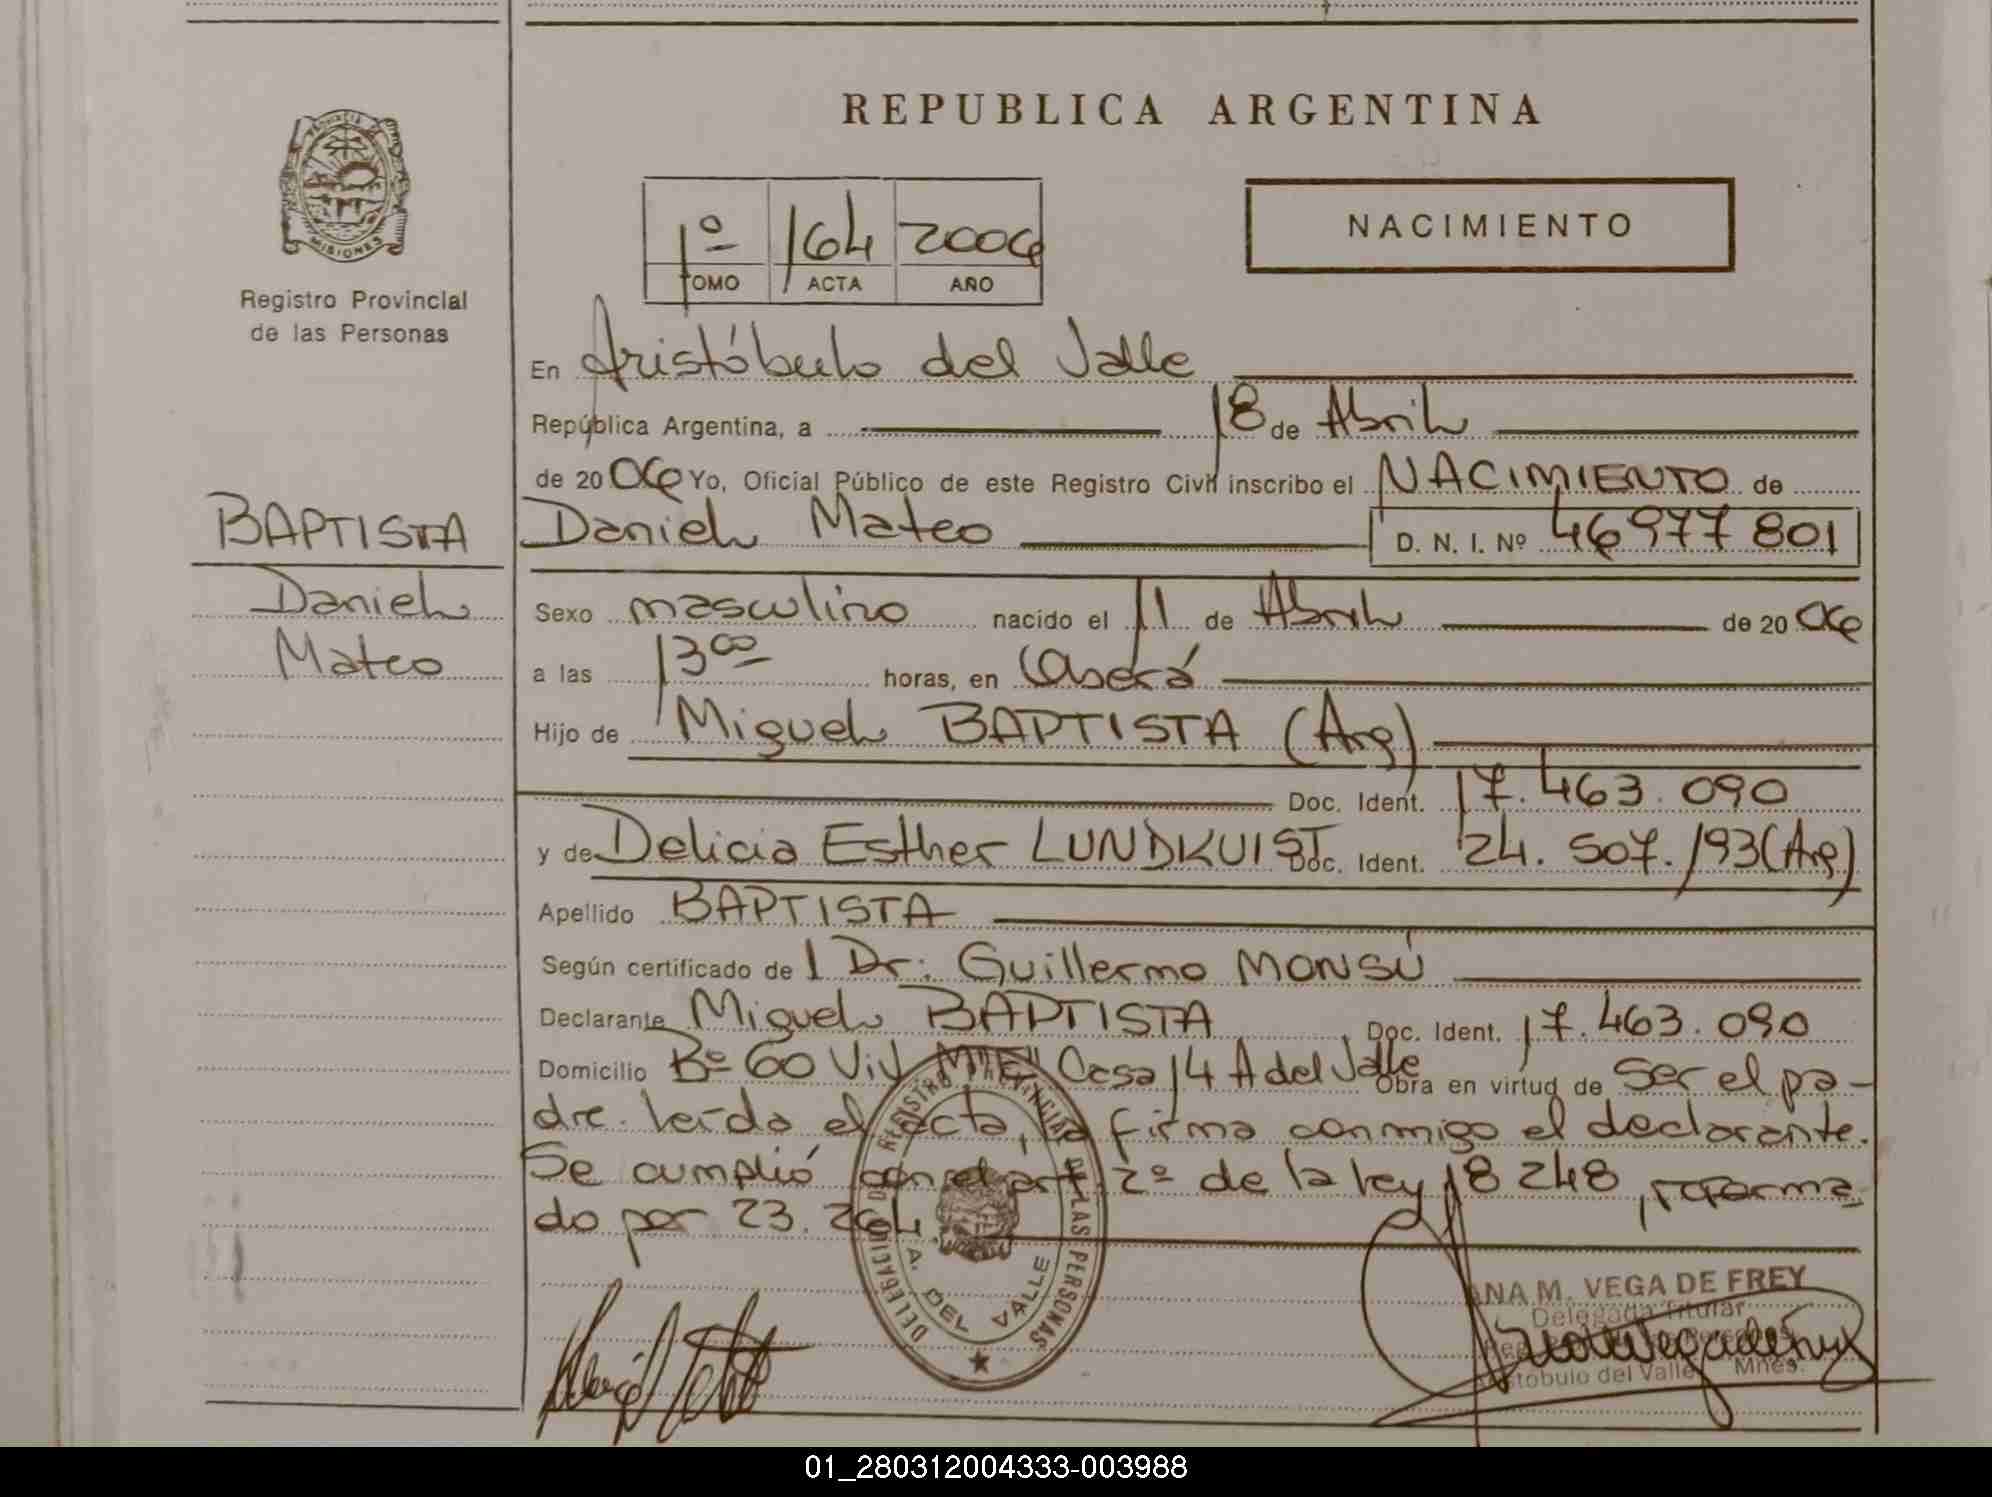 REPUBLICA ARGENTINA
PROVINCIA DE
MISIONES
Registro Provincial
de las Personas
1º 164 2006
TOMO ACTA AÑO
NACIMIENTO
En Aristóbulo del Valle
República Argentina, a 18 de Abril
de 2006 Yo, Oficial Público de este Registro Civil inscribo el NACIMIENTO de
BAPTISTA
Daniel
Mateo
Daniel Mateo D. N. I. Nº 46977801
Sexo masculino nacido el 11 de Abril de 2006
a las 13⁰⁰ horas, en Oberá
Hijo de Miguel BAPTISTA (Arg)
Doc. Ident. 17.463.090
y de Delicia Esther LUNDKUIST Doc. Ident. 24.507.193 (Arg)
Apellido BAPTISTA
Según certificado de l Dr. Guillermo MONSÚ
Declarante Miguel BAPTISTA Doc. Ident. 17.463.090
Domicilio Bº 60 Viv Casa 14 A del Valle Obra en virtud de Ser el pa-
dre. Leída el acta, la firma conmigo el declarante.
Se cumplió con el art 2º de la ley 18248, reforma
do por 23.264.
DELEGACION REGISTRO PROVINCIAL DE LAS PERSONAS
A. DEL VALLE
ANA M. VEGA DE FREY
Delegada Titular
Reg. Personas
Aristobulo del Valle Mnes.
01_280312004333-003988